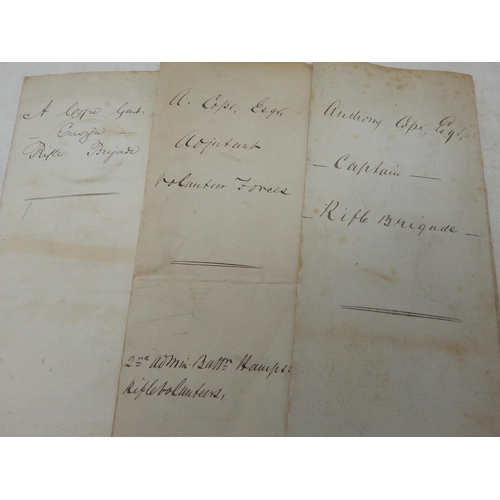 A Cope Gent.
Ensign
Rifle Brigade
A. Cope, Esqr.
Adjutant
Volunteer Forces
2nd Admin Battn Hamps.
Rifle Volunteers.
Anthony Cope, Esqr.
Captain
Rifle Brigade